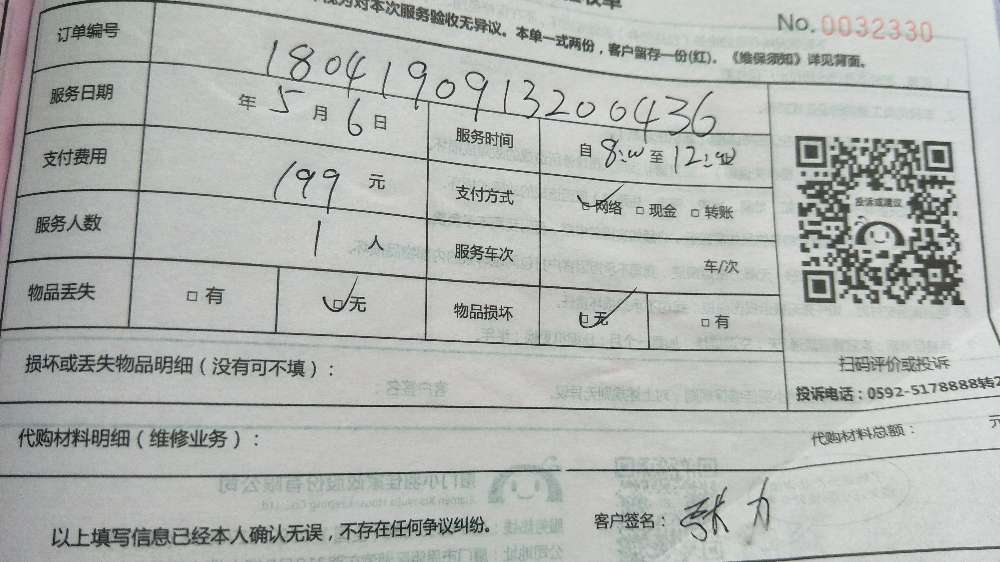 收单
视为对本次服务验收无异议。本单一式两份，客户留存一份(红)。《维保须知》详见背面。
No. 0032330
订单编号 1804190913200436
服务日期 年 5 月 6 日 服务时间 自 8:00 至 12:00
支付费用 199 元 支付方式 □网络 □现金 □转账
服务人数 1 人 服务车次 车/次
物品丢失 □有 □无 物品损坏 □无 □有
投诉或建议
扫码评价或投诉
投诉电话：0592-5178888转2
损坏或丢失物品明细（没有可不填）：
代购材料明细（维修业务）：
代购材料总额： 元
以上填写信息已经本人确认无误，不存在任何争议纠纷。
客户签名：张力